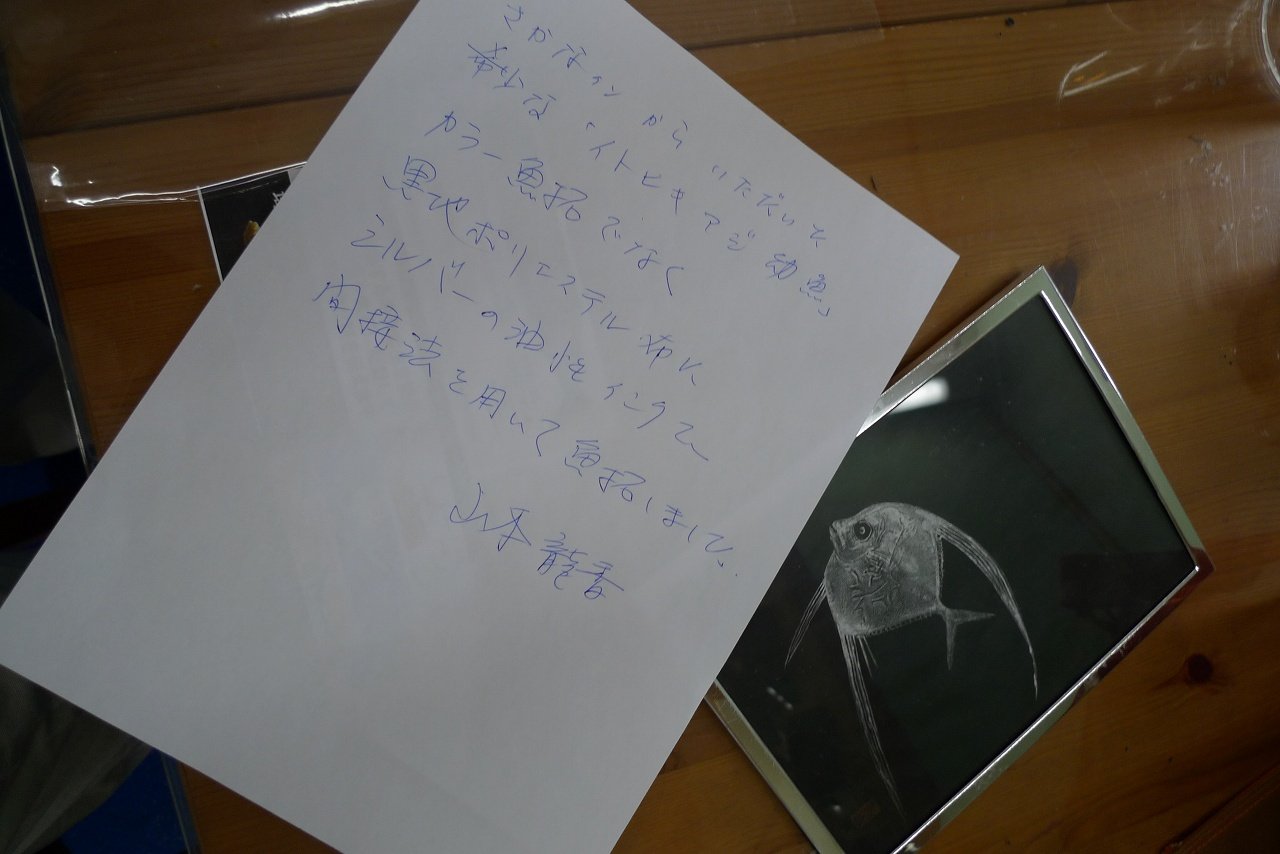 さかなクンからいただいた
希少な「イトヒキアジ幼魚」
カラー魚拓でなく
黒地ポリエステル布に
シルバーの油性インクで
間接法を用いて魚拓しました。
山本龍香